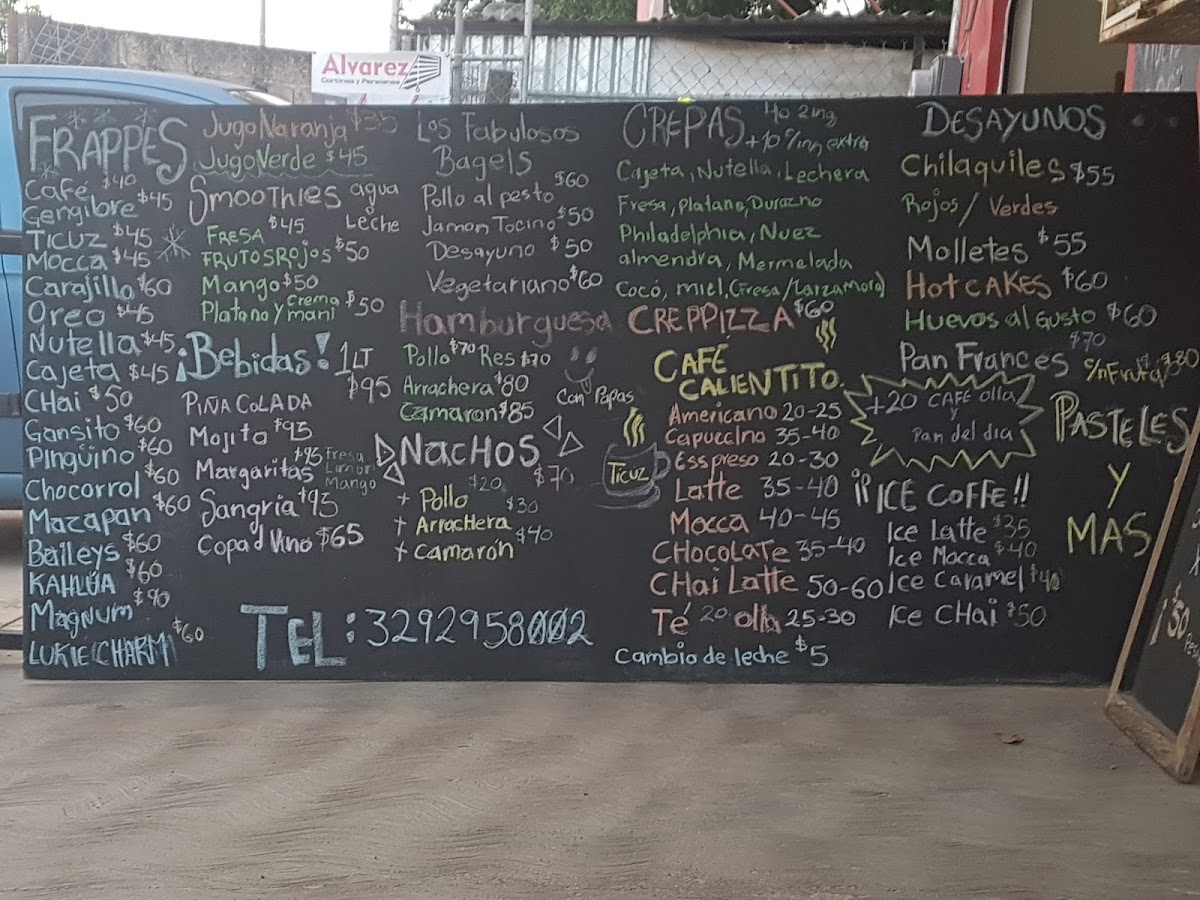 Alvarez
Cortinas y Persianas
FRAPPES
Café $40
Gengibre $45
TICUZ $45
MOCCA $45
Carajillo $60
Oreo $45
Nutella $45
Cajeta $45
CHai $50
Gansito $60
PINgüino $60
Chocorrol $60
Mazapan $60
Baileys $60
KAHLÚA $60
Magnum $90
LUKIE(CHARM) $60
Jugo Naranja $35
Jugo Verde $45
Smoothies agua
o
Leche
FRESA $45
FRUTOSROJOS $50
Mango $50
Platano y crema mani $50
¡Bebidas! 1LT
$95
PIÑA COLADA
Mojito $95
Margaritas $95 Fresa
Limon
Mango
Sangria $95
Copa d Vino $65
TEL: 3292958002
Los Fabulosos
Bagels
Pollo al pesto $60
Jamon Tocino $50
Desayuno $50
Vegetariano $60
Hamburguesa
Pollo $70 Res $70
Arrachera $80
Camaron $85
Con Papas
NACHOS
$70
+ Pollo $20
+ ArracHera $30
+ Camarón $40
TICUZ
CREPAS 40 2ing
+10 %ing extra
Cajeta, Nutella, Lechera
Fresa, Platano, Durazno
Philadelphia, Nuez
almendra, Mermelada
Cocó, miel, (Fresa/Zarzamora)
CREPPIZZA $60
CAFÉ
CALIENTITO.
Americano 20-25
Capuccino 35-40
Esspreso 20-30
Latte 35-40
Mocca 40-45
CHocoLaTe 35-40
CHai Latte 50-60
Té 20 olla 25-30
Cambio de leche $5
DESAYUNOS
Chilaquiles $55
Rojos / Verdes
Molletes $55
HotcaKes $60
Huevos al Gusto $60
Pan Francés $70
s/n Fruta $80
+20 CAFÉ olla
y
Pan del dia
PASTELES
Y
MAS
¡¡ICE COFFE!!
Ice Latte $35
Ice Mocca $40
Ice Caramel $40
Ice CHai $50
$50